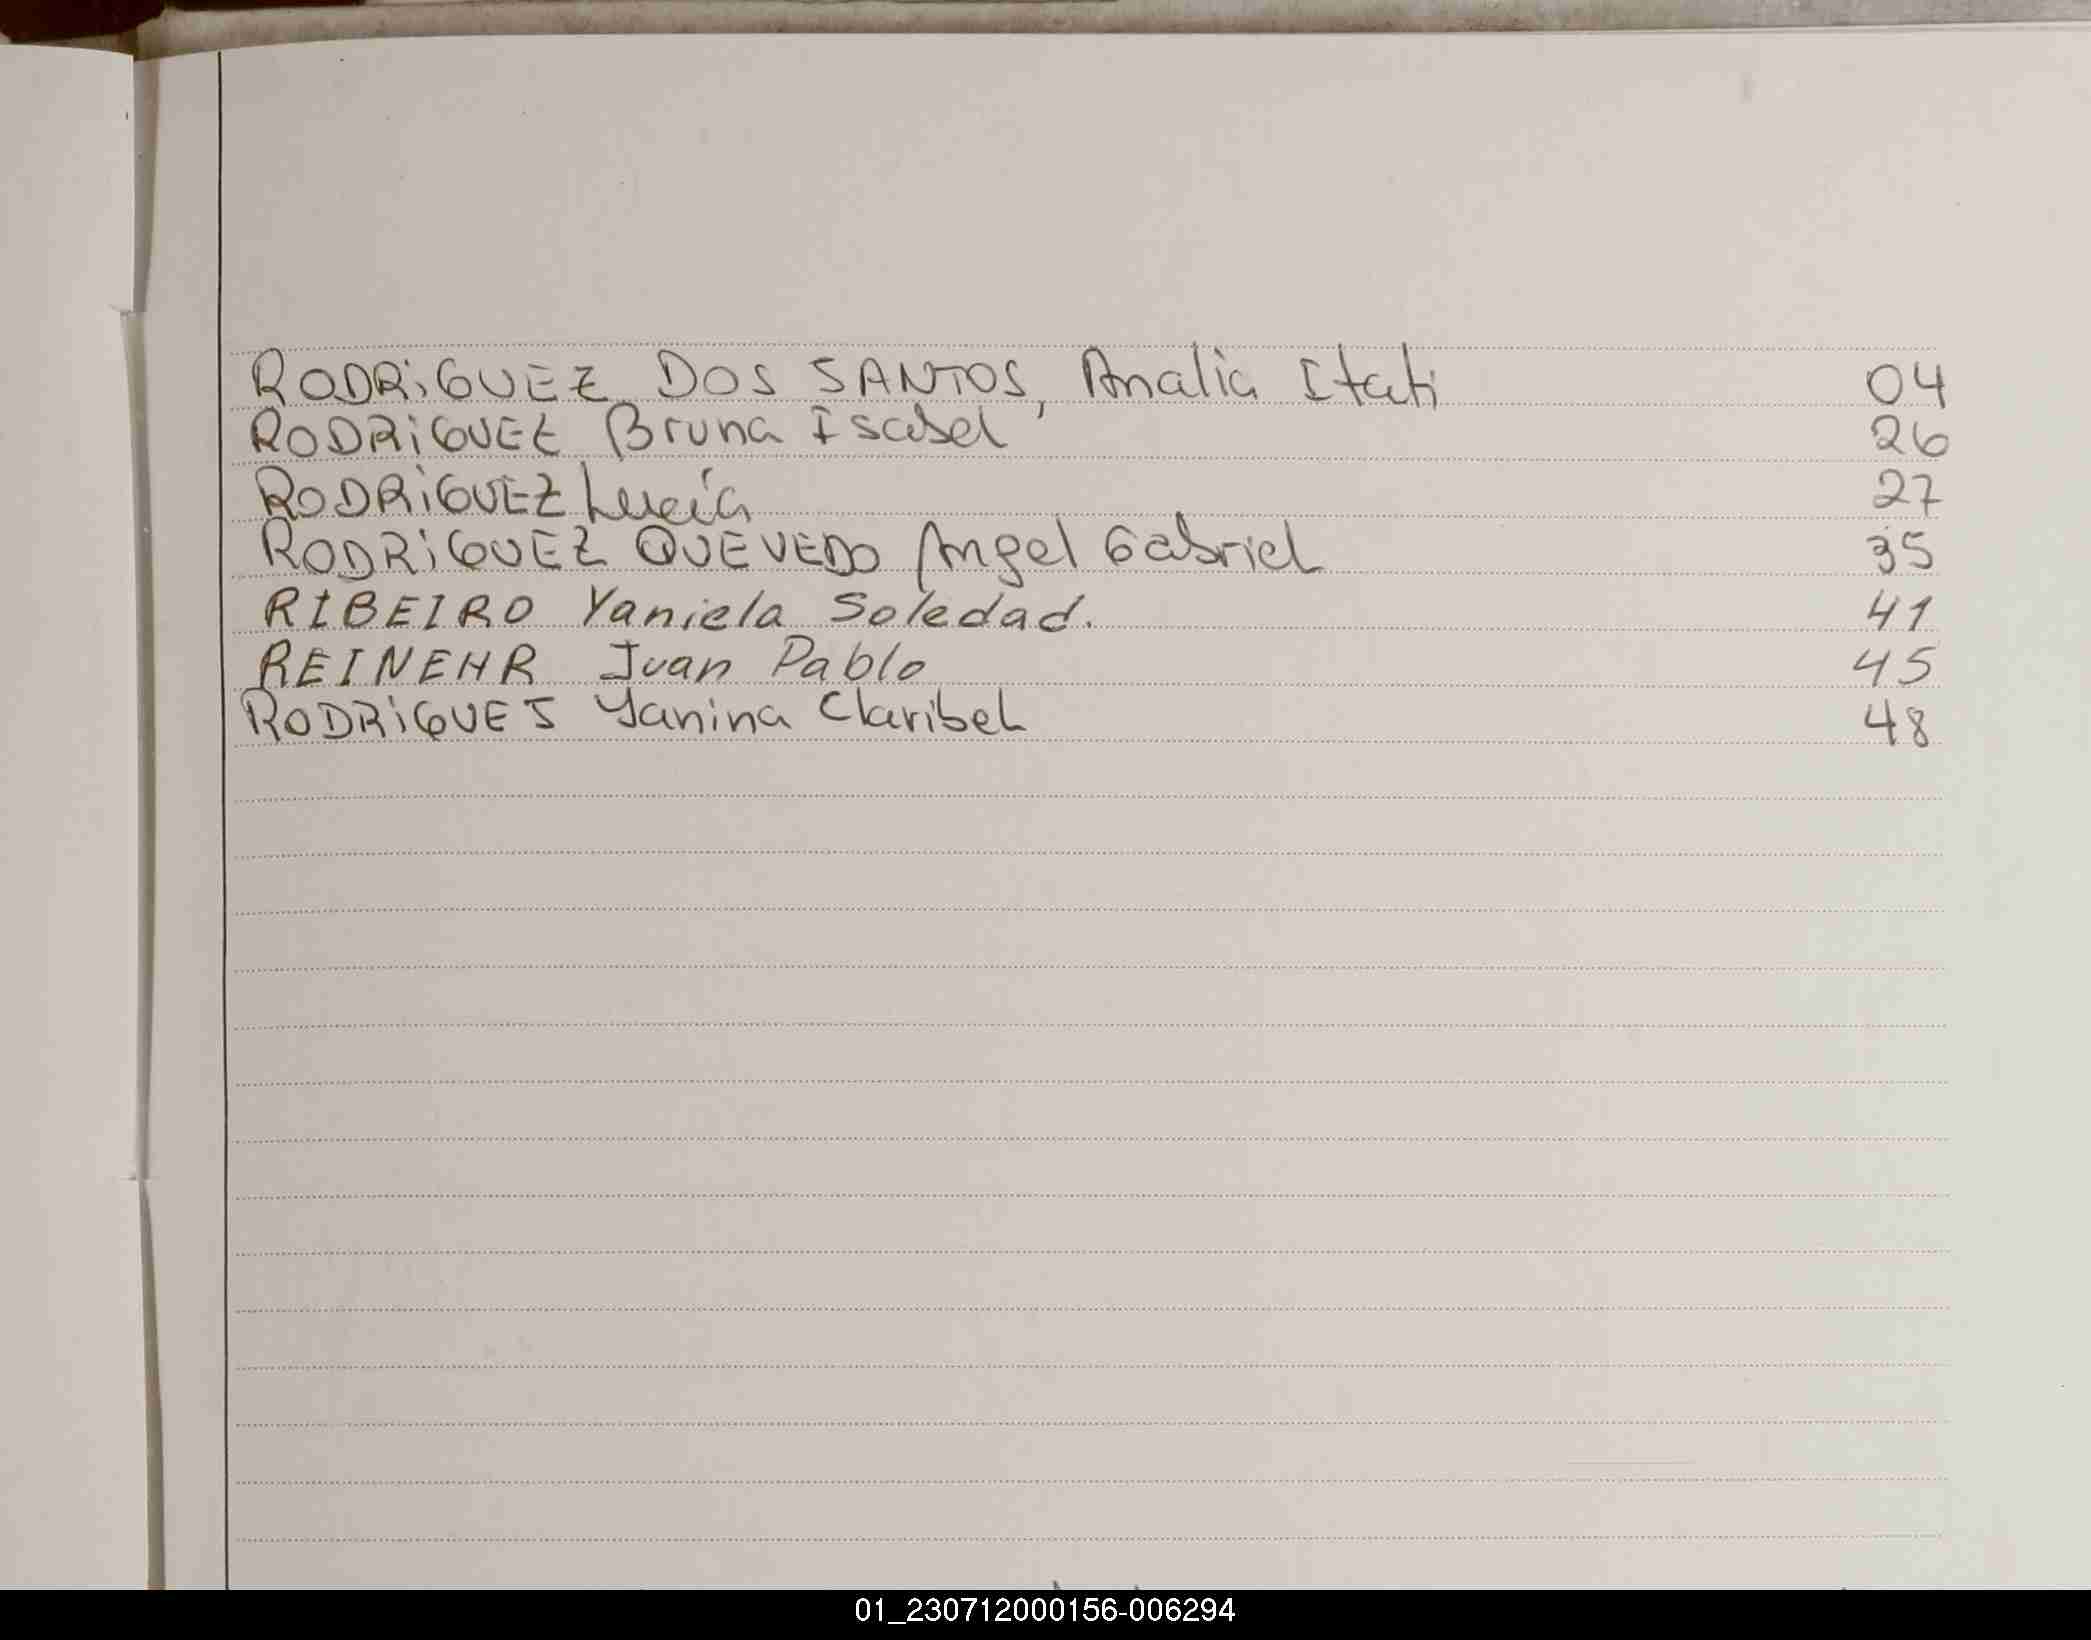 RODRiGUEZ DOS SANTOS, Analia Itati 04
RODRiGUEZ Bruna Isabel 26
RODRiGUEZ Lucía 27
RODRiGUEZ QUEVEDO Angel Gabriel 35
RIBEIRO Yaniela Soledad. 41
REINEHR Juan Pablo 45
RODRiGUES Yanina Claribel 48
01_230712000156-006294